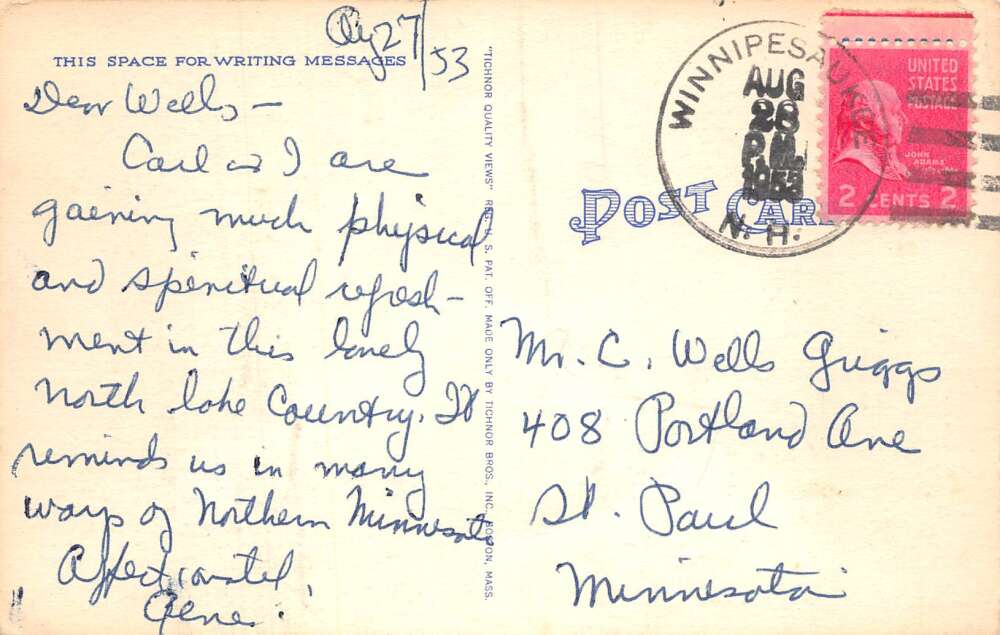 Aug 27/53
THIS SPACE FOR WRITING MESSAGES
Dear Wells –
Carl & I are
gaining much physical
and spiritual refresh-
ment in this lovely
north lake Country. It
reminds us in many
ways of Northern Minnesota
Affectionately,
Gene.
"TICHNOR QUALITY VIEWS" REG. U. S. PAT. OFF. MADE ONLY BY TICHNOR BROS., INC., BOSTON, MASS.
POST CARD
WINNIPESAUKEE
AUG
28
P.M.
1953
N. H.
UNITED
STATES
POSTAGE
JOHN
ADAMS
2 CENTS 2
Mr. C. Wells Griggs
408 Portland Ave
St. Paul
Minnesota